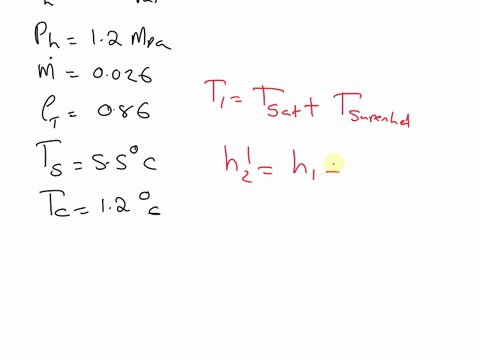 Ph = 1.2 Mpa
ṁ = 0.026
ρT = 0.86
Ts = 5.5°c
Tc = 1.2 °c
T1 = Tsat + Tsuperhet
h2' = h1 =